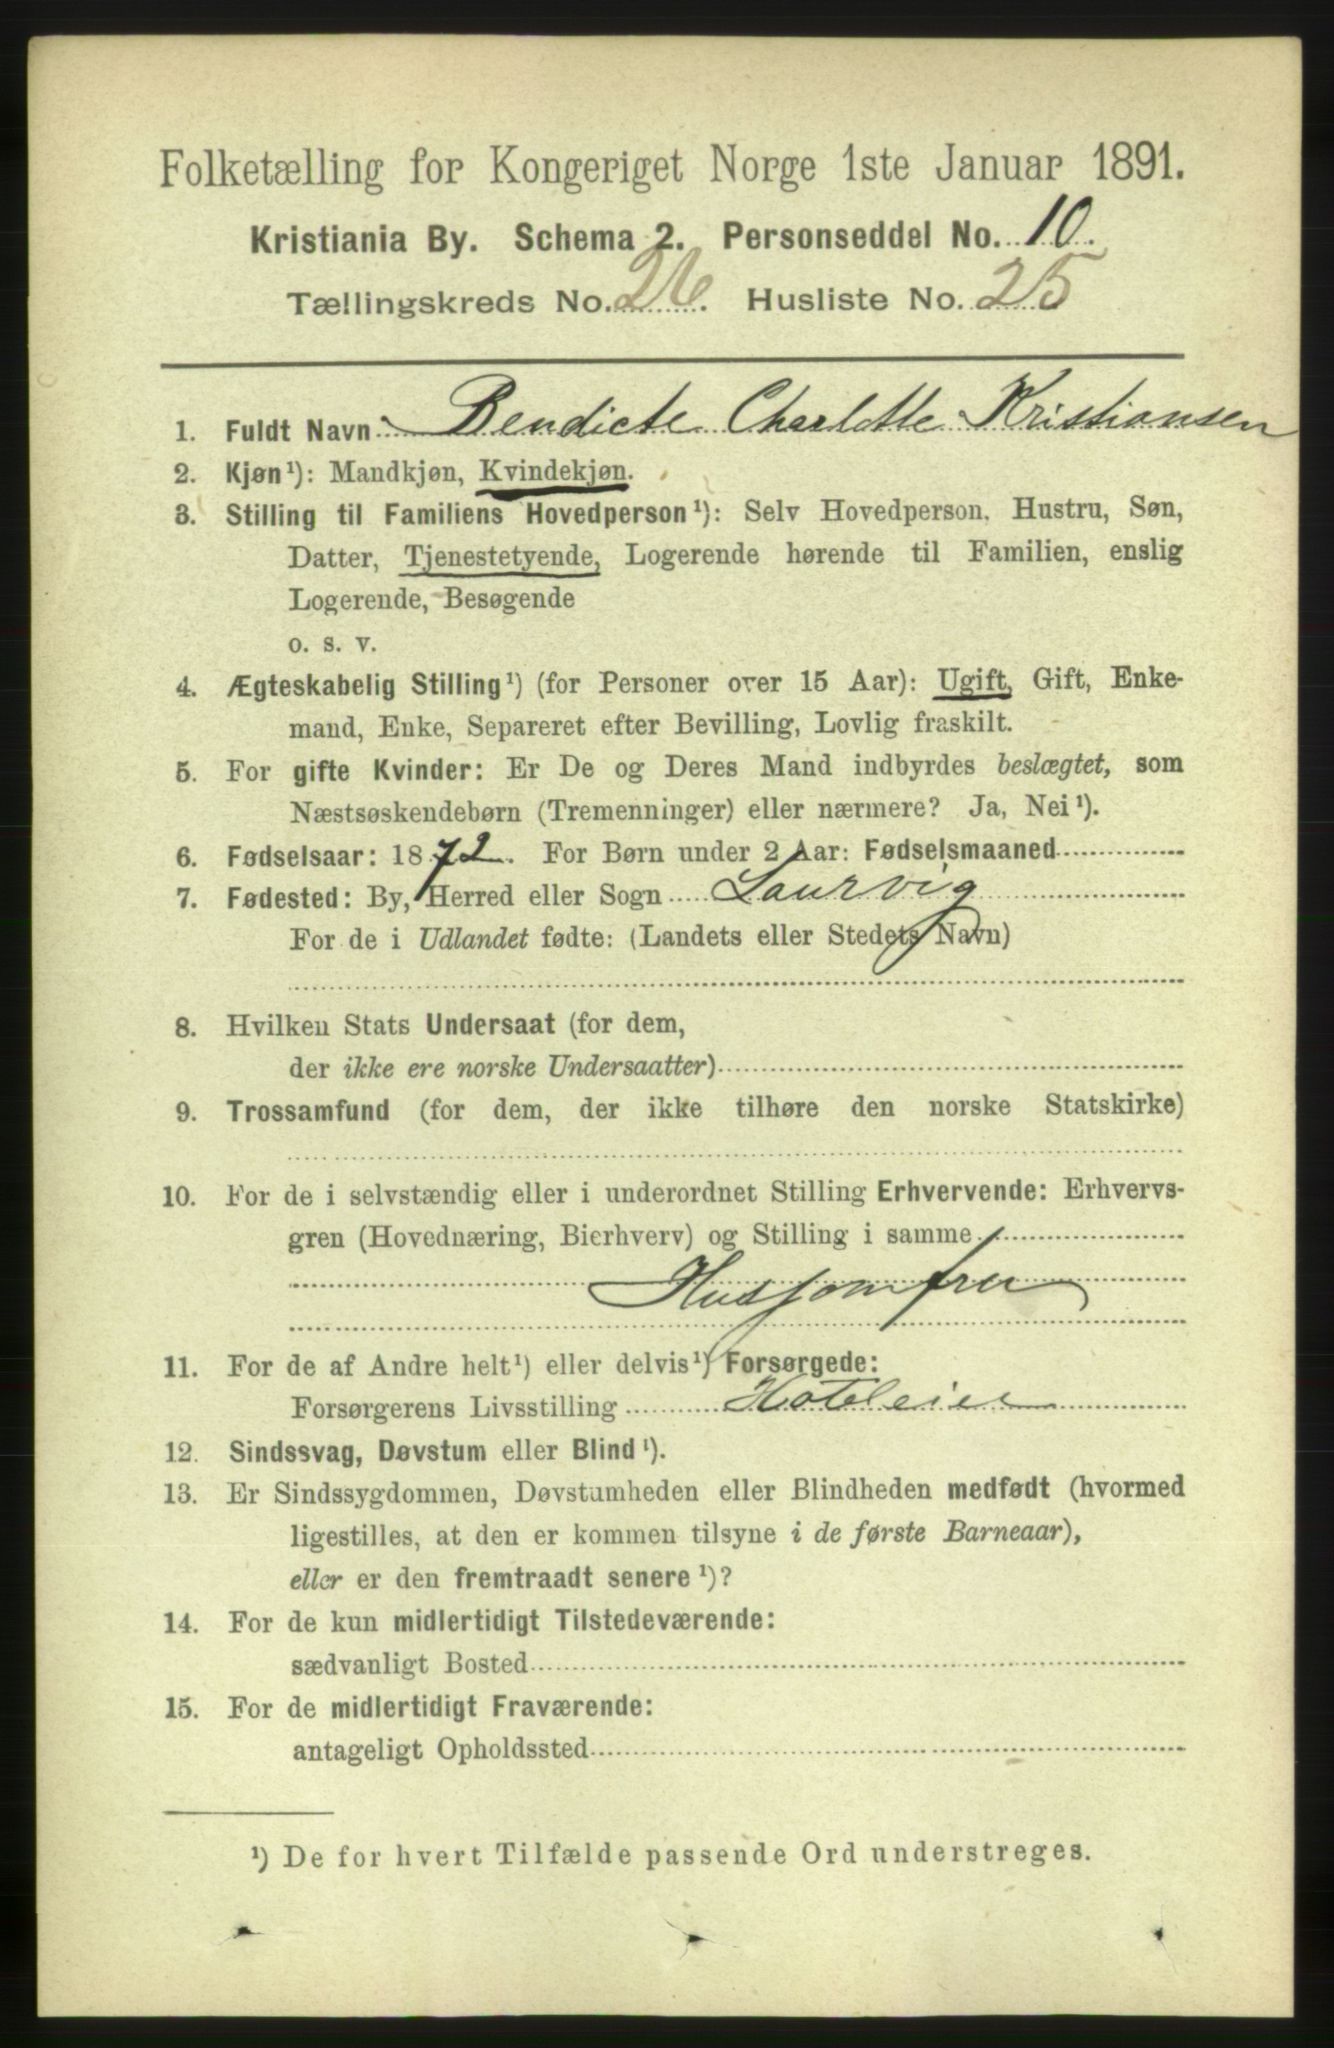 Folketælling for Kongeriget Norge 1ste Januar 1891.
Kristiania By. Schema 2. Personseddel No. 10.
Tællingskreds No. 26. Husliste No. 25
1. Fuldt Navn Bendicte Charlotte Kristiansen
2. Kjøn¹): Mandkjøn, Kvindekjøn.
3. Stilling til Familiens Hovedperson¹): Selv Hovedperson, Hustru, Søn,
Datter, Tjenestetyende, Logerende hørende til Familien, enslig
Logerende, Besøgende
o. s. v.
4. Ægteskabelig Stilling¹) (for Personer over 15 Aar): Ugift, Gift, Enke-
mand, Enke, Separeret efter Bevilling, Lovlig fraskilt.
5. For gifte Kvinder: Er De og Deres Mand indbyrdes beslægtet, som
Næstsøskendebørn (Tremenninger) eller nærmere? Ja, Nei¹).
6. Fødselsaar: 1872. For Børn under 2 Aar: Fødselsmaaned
7. Fødested: By, Herred eller Sogn Laurvig
For de i Udlandet fødte: (Landets eller Stedets Navn)
8. Hvilken Stats Undersaat (for dem,
der ikke ere norske Undersaatter)
9. Trossamfund (for dem, der ikke tilhøre den norske Statskirke)
10. For de i selvstændig eller i underordnet Stilling Erhvervende: Erhvervs-
gren (Hovednæring, Bierhverv) og Stilling i samme
Husjomfru
11. For de af Andre helt¹) eller delvis¹) Forsørgede:
Forsørgerens Livsstilling Hoteleier
12. Sindssvag, Døvstum eller Blind¹).
13. Er Sindssygdommen, Døvstumheden eller Blindheden medfødt (hvormed
ligestilles, at den er kommen tilsyne i de første Barneaar),
eller er den fremtraadt senere¹)?
14. For de kun midlertidigt Tilstedeværende:
sædvanligt Bosted
15. For de midlertidigt Fraværende:
antageligt Opholdssted
¹) De for hvert Tilfælde passende Ord understreges.